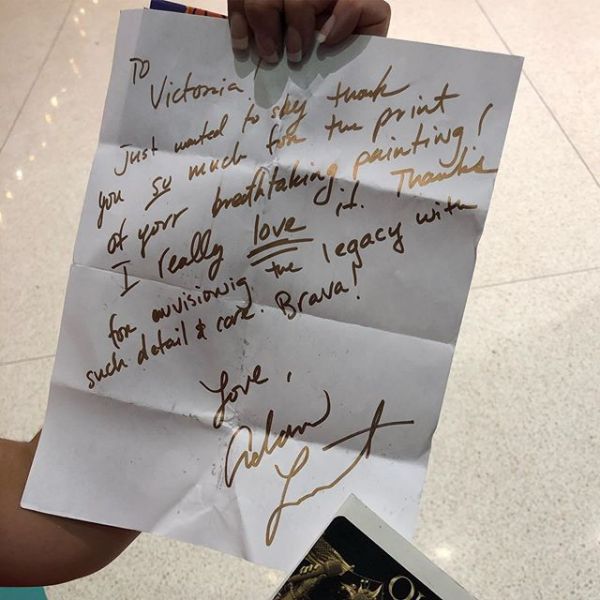 To
Victoria,
Just wanted to say thank
you so much for the print
of your breathtaking painting!
I really love it. Thanks
for envisioning the legacy with
such detail & care. Brava!
Love,
Adam